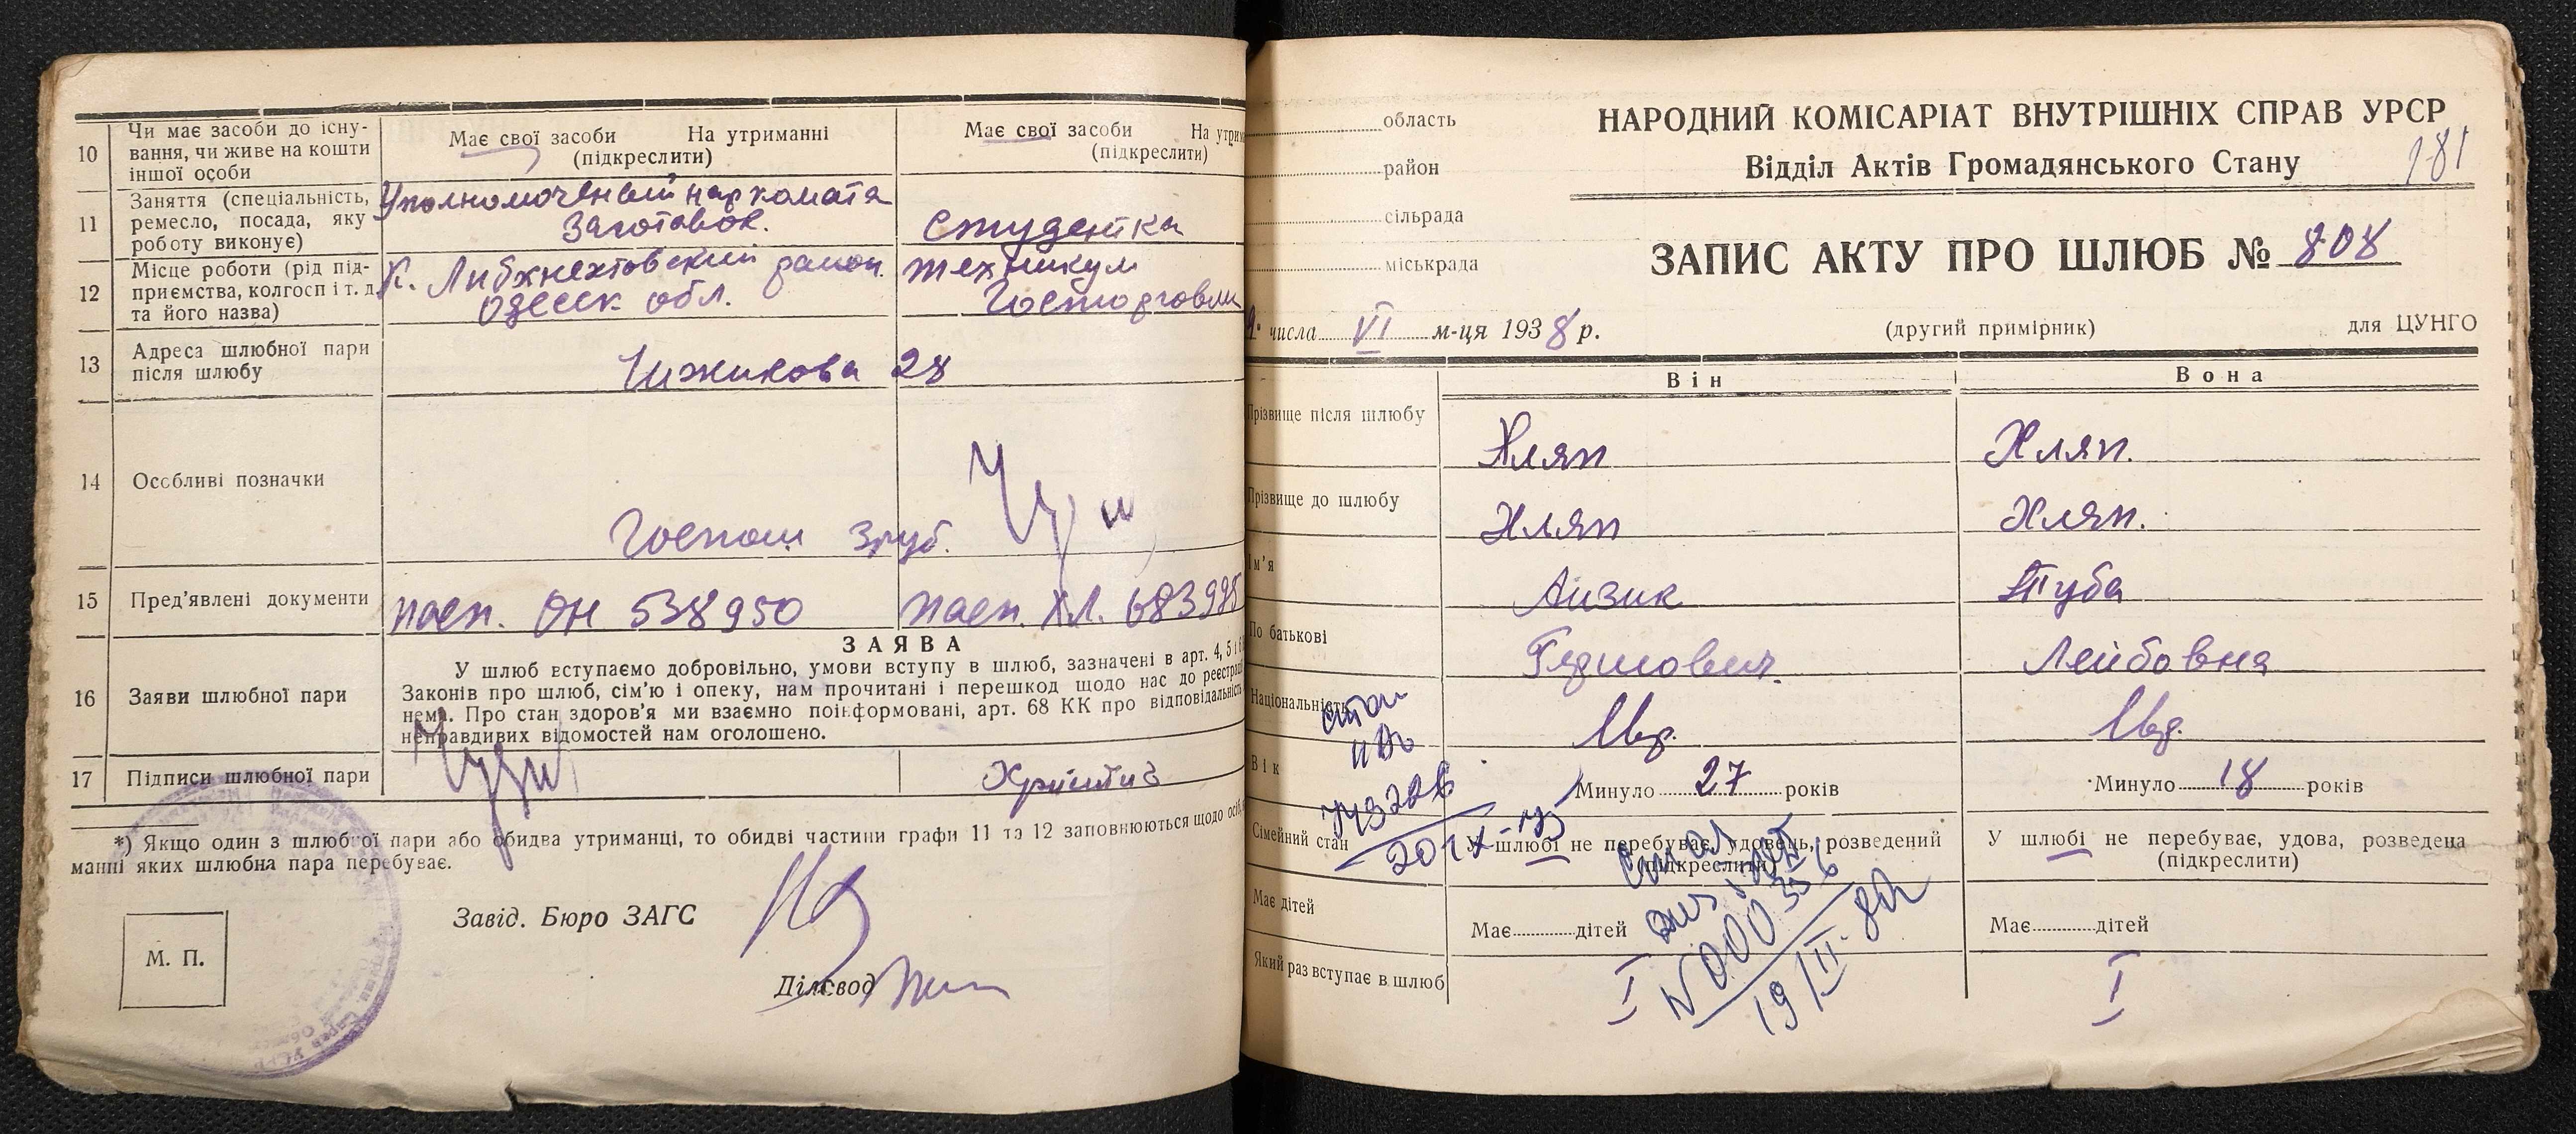 10
Чи має засоби до існу-
вання, чи живе на кошти
іншої особи
Має свої засоби На утриманні
(підкреслити)
Має свої засоби На утрим
(підкреслити)
11
Заняття (спеціальність,
ремесло, посада, яку
роботу виконує)
Уполномоченный наркомата
Заготовок.
студентка
12
Місце роботи (рід під-
приємства, колгосп і т. д.
та його назва)
К. Либкнехтовский район
Одесск. обл.
техникум
Госторговли
13
Адреса шлюбної пари
після шлюбу
Чижикова 28
14
Особливі позначки
Госпош 3 руб.
15
Пред'явлені документи
пасп. ОН 538950
пасп. ХЛ. 683985
16
Заяви шлюбної пари
ЗАЯВА
У шлюб вступаємо добровільно, умови вступу в шлюб, зазначені в арт. 4, 5 і 6
Законів про шлюб, сім'ю і опеку, нам прочитані і перешкод щодо нас до реєстрації
нема. Про стан здоров'я ми взаємно поінформовані, арт. 68 КК про відповідальність
неправдивих відомостей нам оголошено.
17
Підписи шлюбної пари
*) Якщо один з шлюбної пари або обидва утриманці, то обидві частини графи 11 та 12 заповнюються щодо осіб,
манні яких шлюбна пара перебуває.
М. П.
Завід. Бюро ЗАГС
Діловод
область
район
сільрада
міськрада
НАРОДНИЙ КОМІСАРІАТ ВНУТРІШНІХ СПРАВ УРСР
Відділ Актів Громадянського Стану
181
ЗАПИС АКТУ ПРО ШЛЮБ № 808
числа VI м-ця 1938 р.
(другий примірник)
для ЦУНГО
Він
Вона
Прізвище після шлюбу
Хляп
Хляп.
Прізвище до шлюбу
Хляп
Хляп.
Ім'я
Айзик
Туба
По батькові
Лейбовна
Національність
Євр.
Євр.
Вік
Минуло 27 років
Минуло 18 років
Сімейний стан
У шлюбі не перебуває, удовець, розведений
(підкреслити)
У шлюбі не перебуває, удова, розведена
(підкреслити)
Має дітей
Має дітей
Має дітей
Який раз вступає в шлюб
I
I